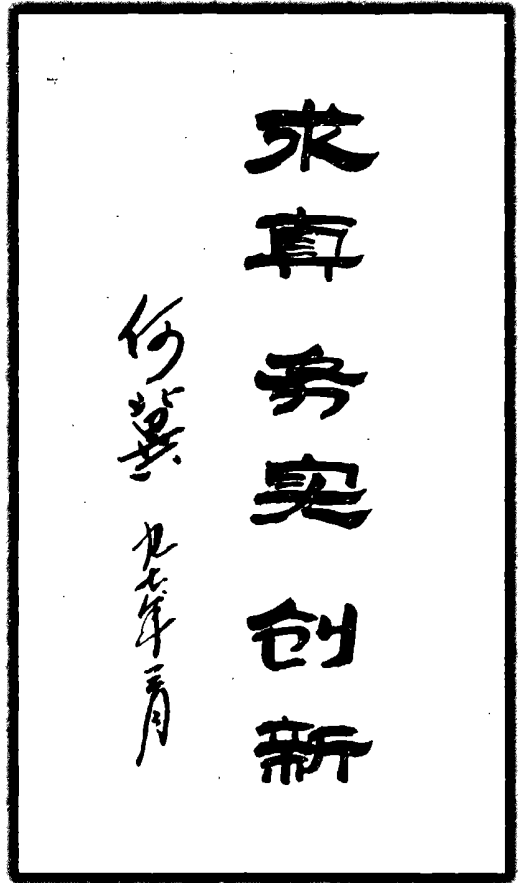 求真务实创新
何冀 九七年三月